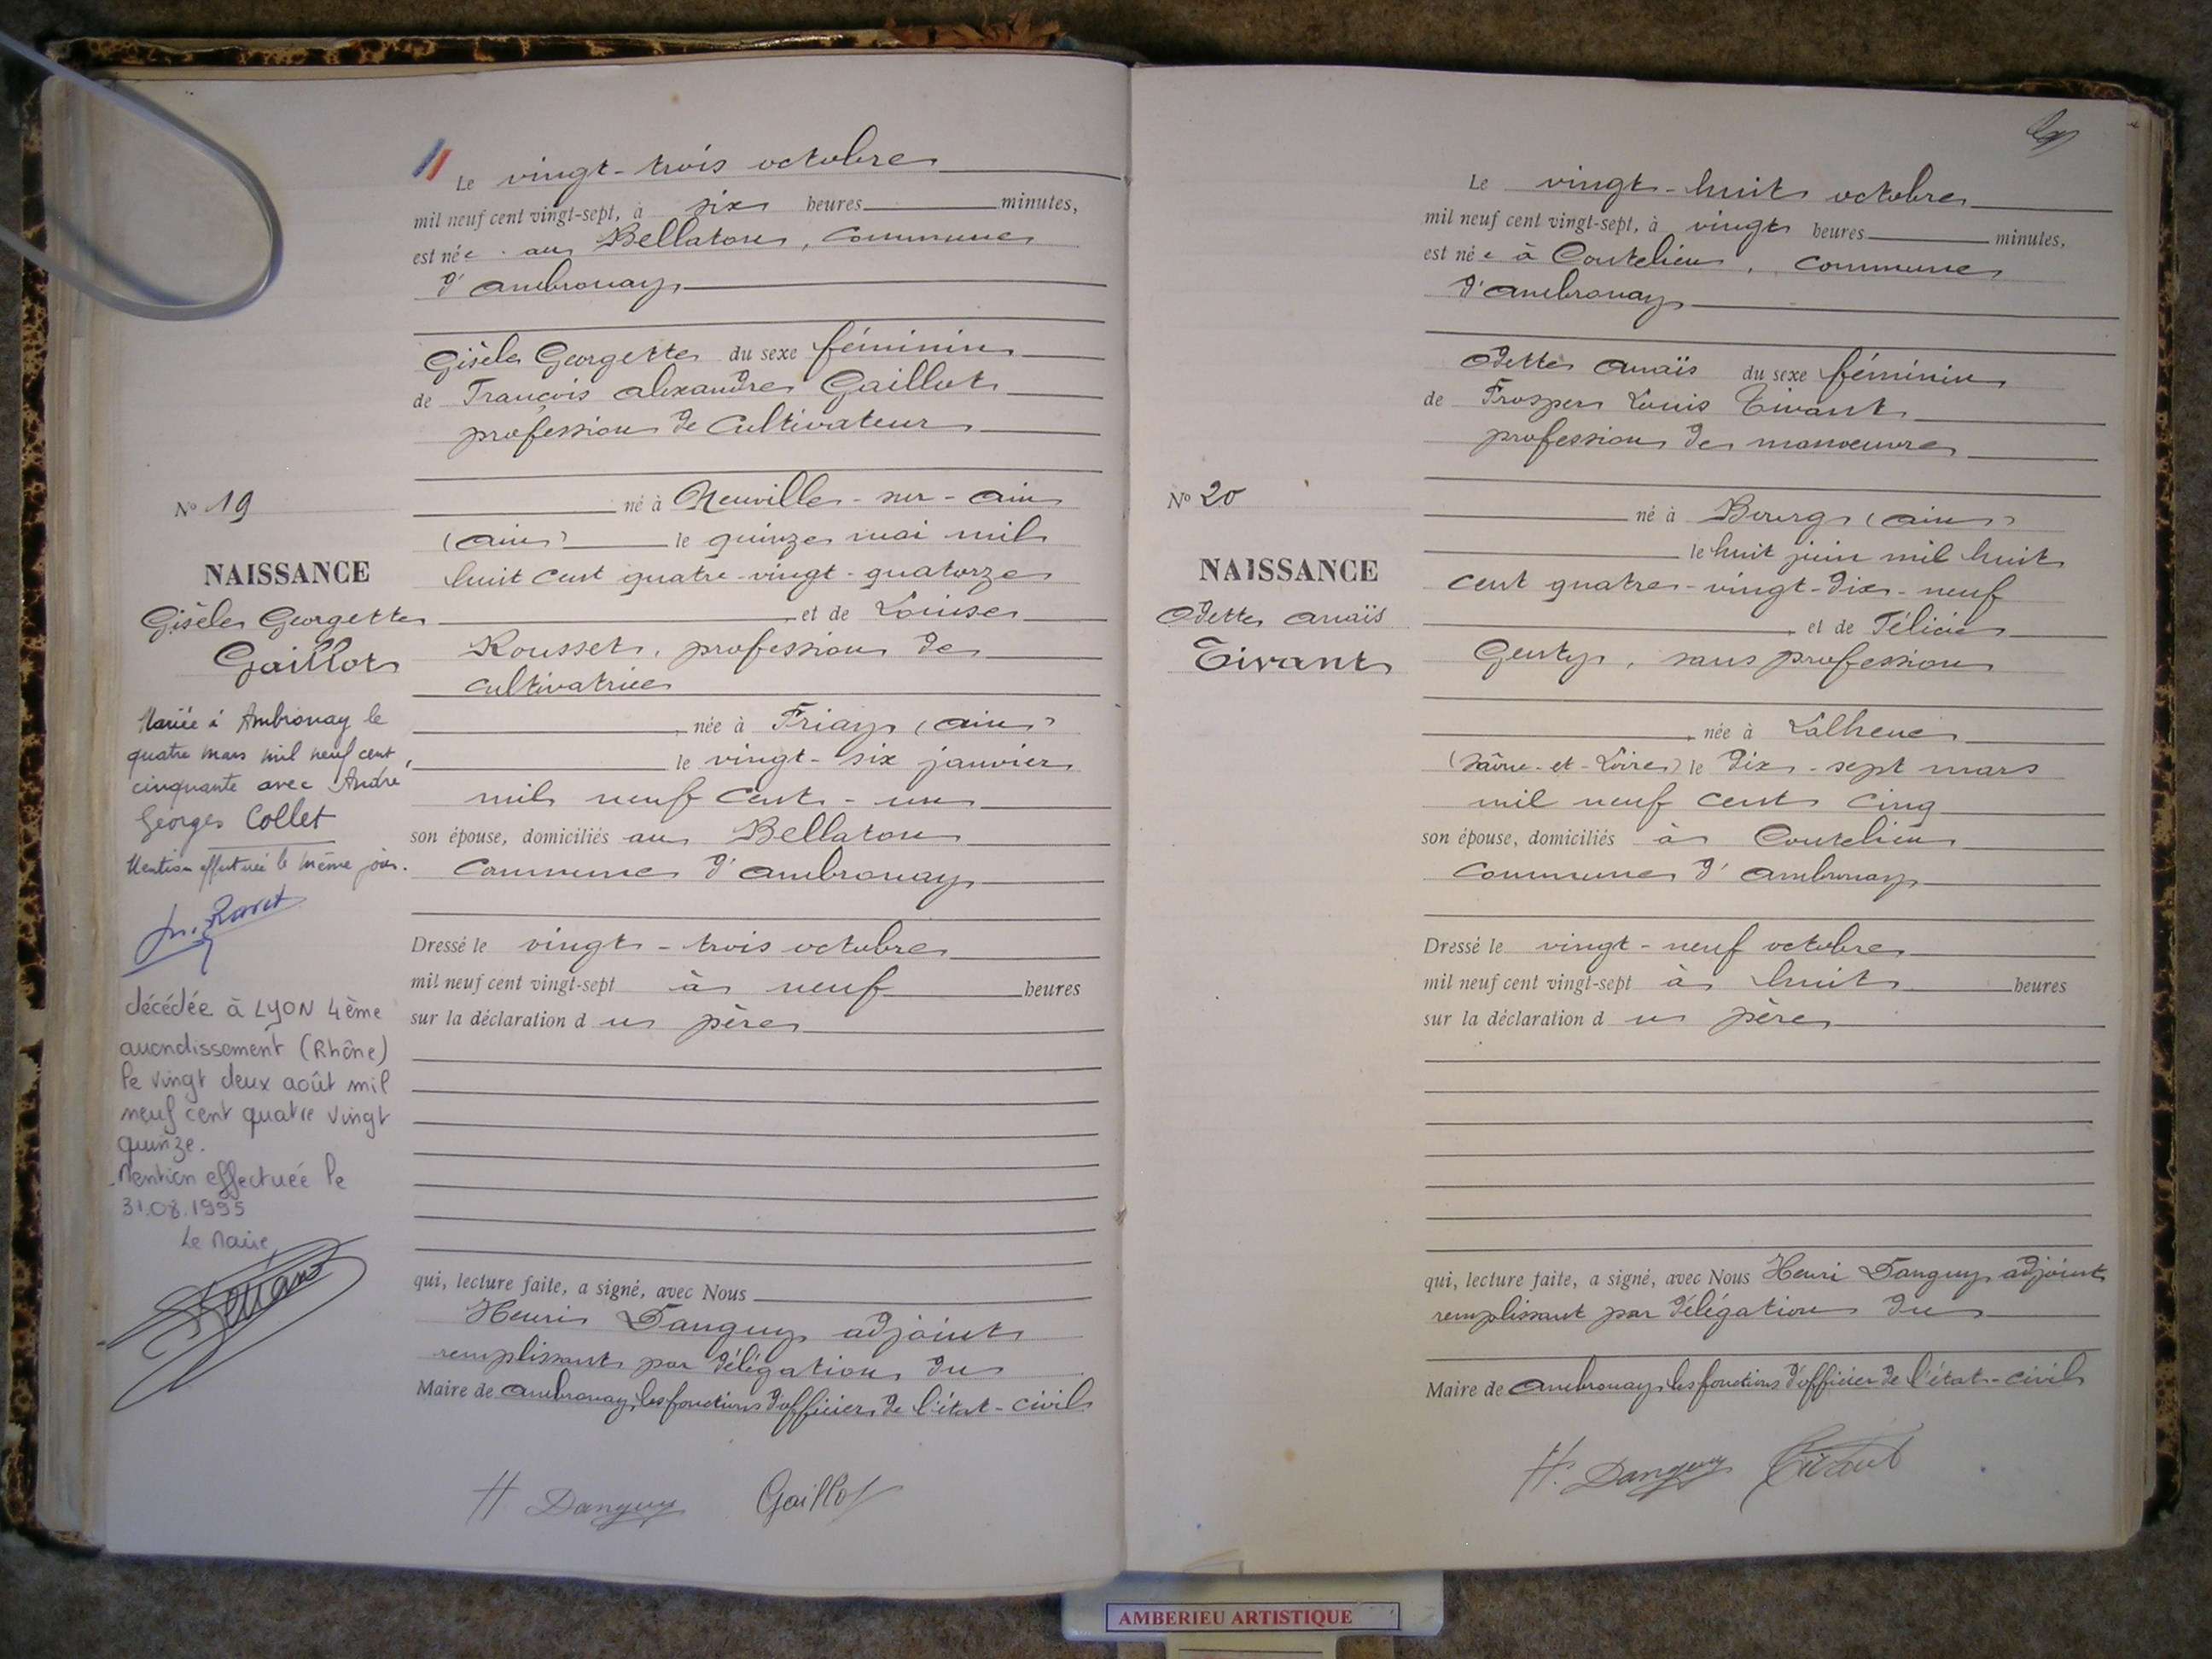 Le vingt-trois octobre
mil neuf cent vingt-sept, à six heures minutes,
est née au Bellaton, commune
d'ambronay
Gisèle Georgette du sexe féminin
de François alexandre Gaillot
profession de cultivateur
né à Neuville-sur-ain
(ain) le quinze mai mil
huit cent quatre-vingt-quatorze
et de Louise
Rousset, profession de
cultivatrice
née à Priay (ain)
le vingt-six janvier
mil neuf cent-un
son épouse, domiciliés au Bellaton
commune d'ambronay
Dressé le vingt-trois octobre
mil neuf cent vingt-sept à neuf heures
sur la déclaration du père
qui, lecture faite, a signé, avec Nous
Henri Danguy adjoint
remplissant par délégation du
Maire de ambronay les fonctions d'officier de l'état-civil
H. Danguy Gaillot
N° 19
NAISSANCE
Gisèle Georgette
Gaillot
Mariée à Ambronay le
quatre mars mil neuf cent
cinquante avec André
Georges Collet
Mention effectuée le même jour.
décédée à LYON 4ème
arrondissement (Rhône)
le vingt deux août mil
neuf cent quatre vingt
quinze.
Mention effectuée le
31.08.1995
Le Maire
Le vingt-huit octobre
mil neuf cent vingt-sept, à vingt heures minutes,
est née à Coutelieu, commune
d'ambronay
Odette anaïs du sexe féminin
de Prosper Louis Tivant
profession de manoeuvre
né à Bourg (ain)
le huit juin mil huit
cent quatre-vingt-dix-neuf
et de Félicie
Genty, sans profession
née à
(Saône-et-Loire) le dix-sept mars
mil neuf cent cinq
son épouse, domiciliés à Coutelieu
commune d'ambronay
Dressé le vingt-neuf octobre
mil neuf cent vingt-sept à huit heures
sur la déclaration du père
qui, lecture faite, a signé, avec Nous Henri Danguy adjoint
remplissant par délégation du
Maire de ambronay les fonctions d'officier de l'état-civil
H. Danguy Tivant
N° 20
NAISSANCE
Odette anaïs
Tivant
AMBERIEU ARTISTIQUE